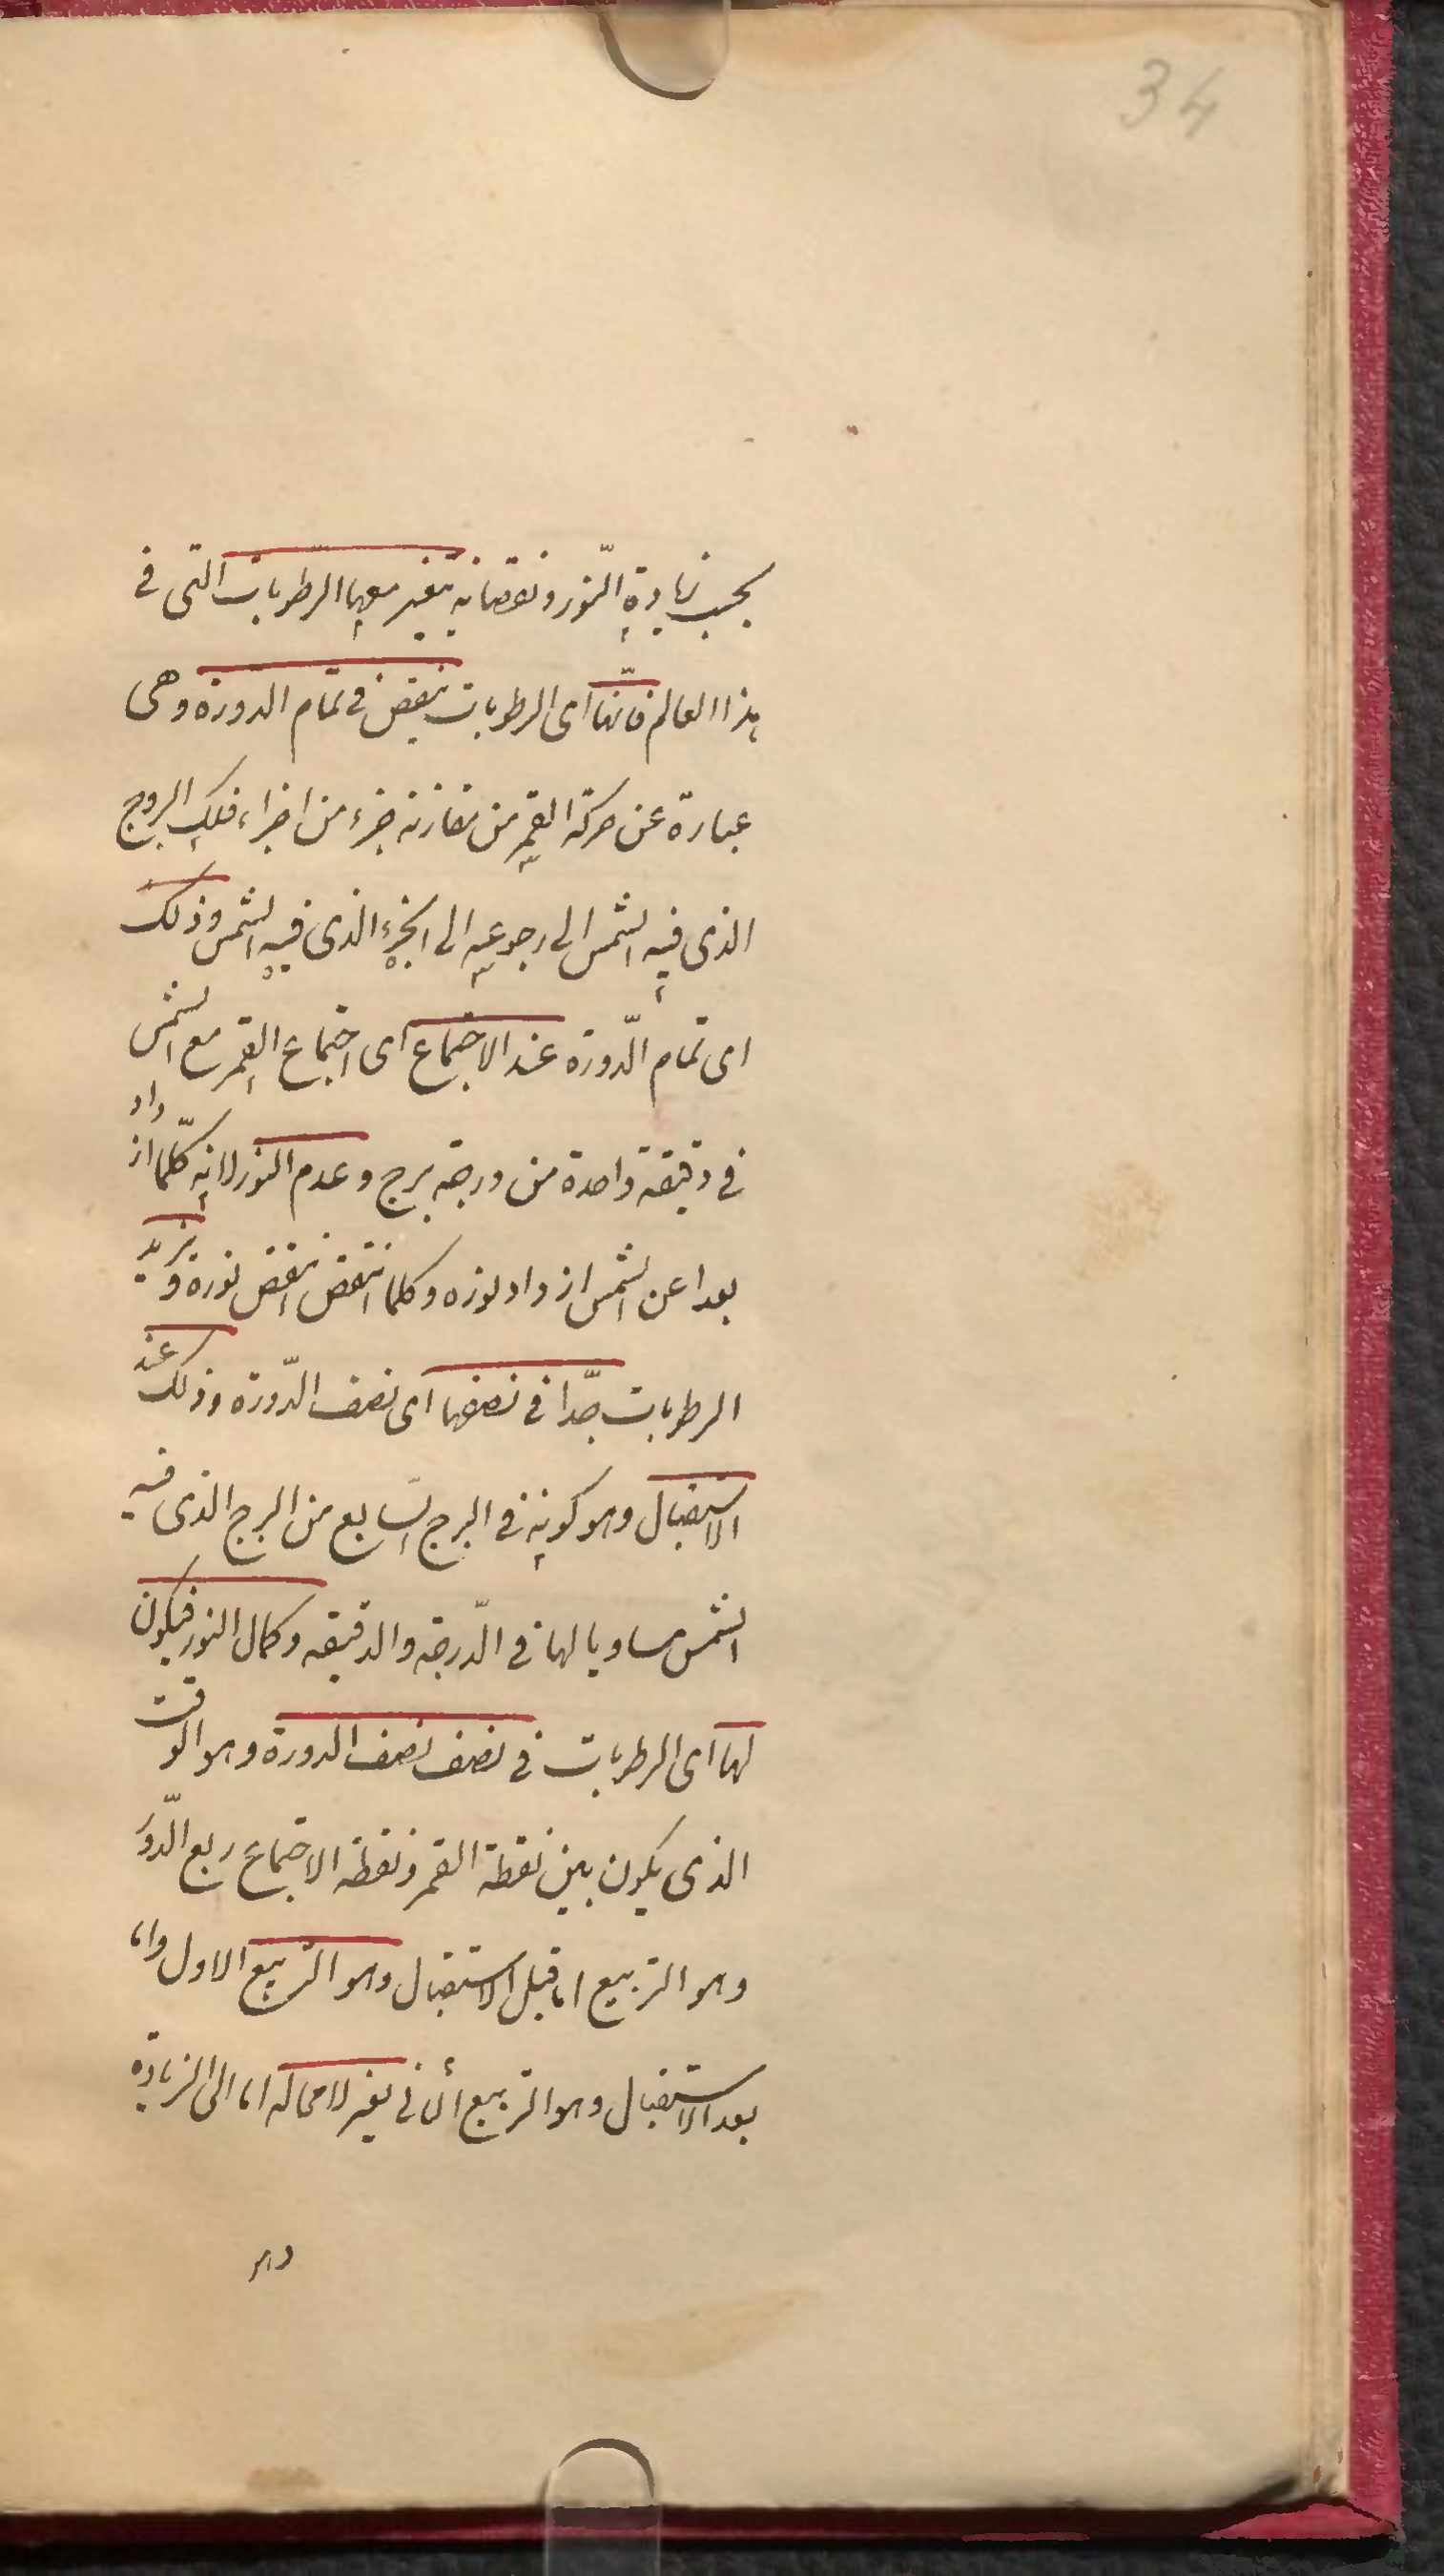 34
بحسب زيادة النّور ونقصانه تتغير معها الرّطوبات التى فى
هذا العالم فانّها اى الرطوبات تنقص فى تمام الدورة وهى
عبارة عن حركة القمر من مقارنة جزء من اجزاء فلك البروج
الذى فيه الشمس الى رجوعه الى الجزء الذى فيه الشمس وذلك
اى تمام الدّورة عند الاجتماع اى اجتماع القمر مع الشمس
فى دقيقة واحدة من درجة برج وعدم النور لانه كلّما ازداد
بعدا عن الشمس ازداد نوره وكلما انتقص انتقص نوره وتزيد
الرطوبات جدّا فى نصفها اى نصف الدّورة وذلك عند
الاستقبال وهو كونه فى البرج السّابع من البرج الذى فيه
الشمس مساويا لها فى الدّرجة والدقيقه وكمال النور فيكون
لها اى الرطوبات فى نصف نصف الدورة وهو الوقت
الذى يكون بين نقطة القمر ونقطة الاجتماع ربع الدّور
وهو التربيع اما قبل الاستقبال وهو التربيع الاول واما
بعد الاستقبال وهو التربيع الثانى تغير لا محالة اما الى الزيادة